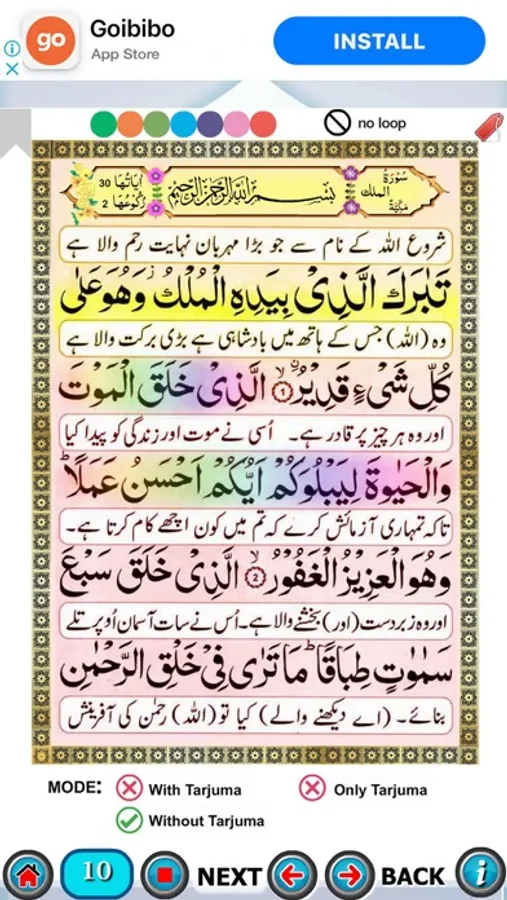 Goibibo
go
App Store
INSTALL
no loop
سُوْرَةُ الملك مَكِّيَّةٌ
بِسْمِ اللهِ الرَّحْمٰنِ الرَّحِيْمِ
اٰيَاتُهَا 30
رُكُوْعُهَا 2
شروع اللہ کے نام سے جو بڑا مہربان نہایت رحم والا ہے
تَبٰرَكَ الَّذِىْ بِيَدِهِ الْمُلْكُ ۫ وَهُوَ عَلٰى
وہ (اللہ) جس کے ہاتھ میں بادشاہی ہے بڑی برکت والا ہے
كُلِّ شَىْءٍ قَدِيْرُ ۨ ۙ﴿1﴾ الَّذِىْ خَلَقَ الْمَوْتَ
اور وہ ہر چیز پر قادر ہے۔ اُسی نے موت اور زندگی کو پیدا کیا
وَالْحَيٰوةَ لِيَبْلُوَكُمْ اَيُّكُمْ اَحْسَنُ عَمَلًا ؕ
تاکہ تمہاری آزمائش کرے کہ تم میں کون اچھے کام کرتا ہے۔
وَهُوَ الْعَزِيْزُ الْغَفُوْرُ ۙ﴿2﴾ الَّذِىْ خَلَقَ سَبْعَ
اور وہ زبردست (اور) بخشنے والا ہے۔ اُس نے سات آسمان اُوپر تلے
سَمٰوٰتٍ طِبَاقًا ؕ مَا تَرٰى فِىْ خَلْقِ الرَّحْمٰنِ
بنائے۔ (اے دیکھنے والے) کیا تو (اللہ) رحمٰن کی آفرینش
MODE: With Tarjuma Only Tarjuma
Without Tarjuma
10 NEXT BACK i